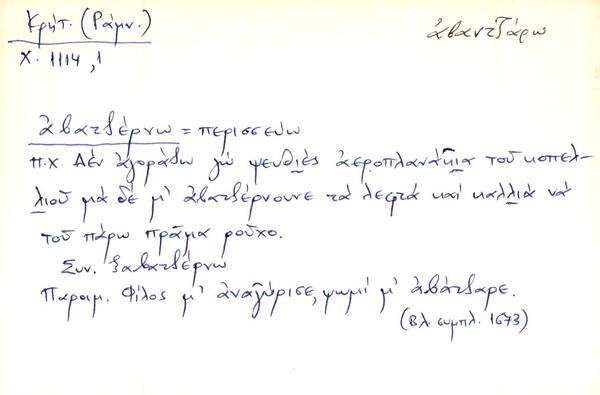 Κρήτ. (Ράμν.)
Χ. 1114, 1
ἀβαντζάρω
ἀβατζέρνω = περισσεύω
π.χ. Δέν ἀγοράζω γώ ψευθιές ἀεροπλανάκια τοῦ κοπελ-
λιοῦ μά δέ μ' ἀβατζέρνουνε τά λεφτά καί καλλιά νά
τοῦ πάρω πρᾶμα ροῦχο.
Συν. ξαβατζέρνω
Παροιμ. Φίλος μ' ἀναγύρισε, ψωμί μ' ἀβάτζαρε.
(Βλ. συμπλ. 1673)